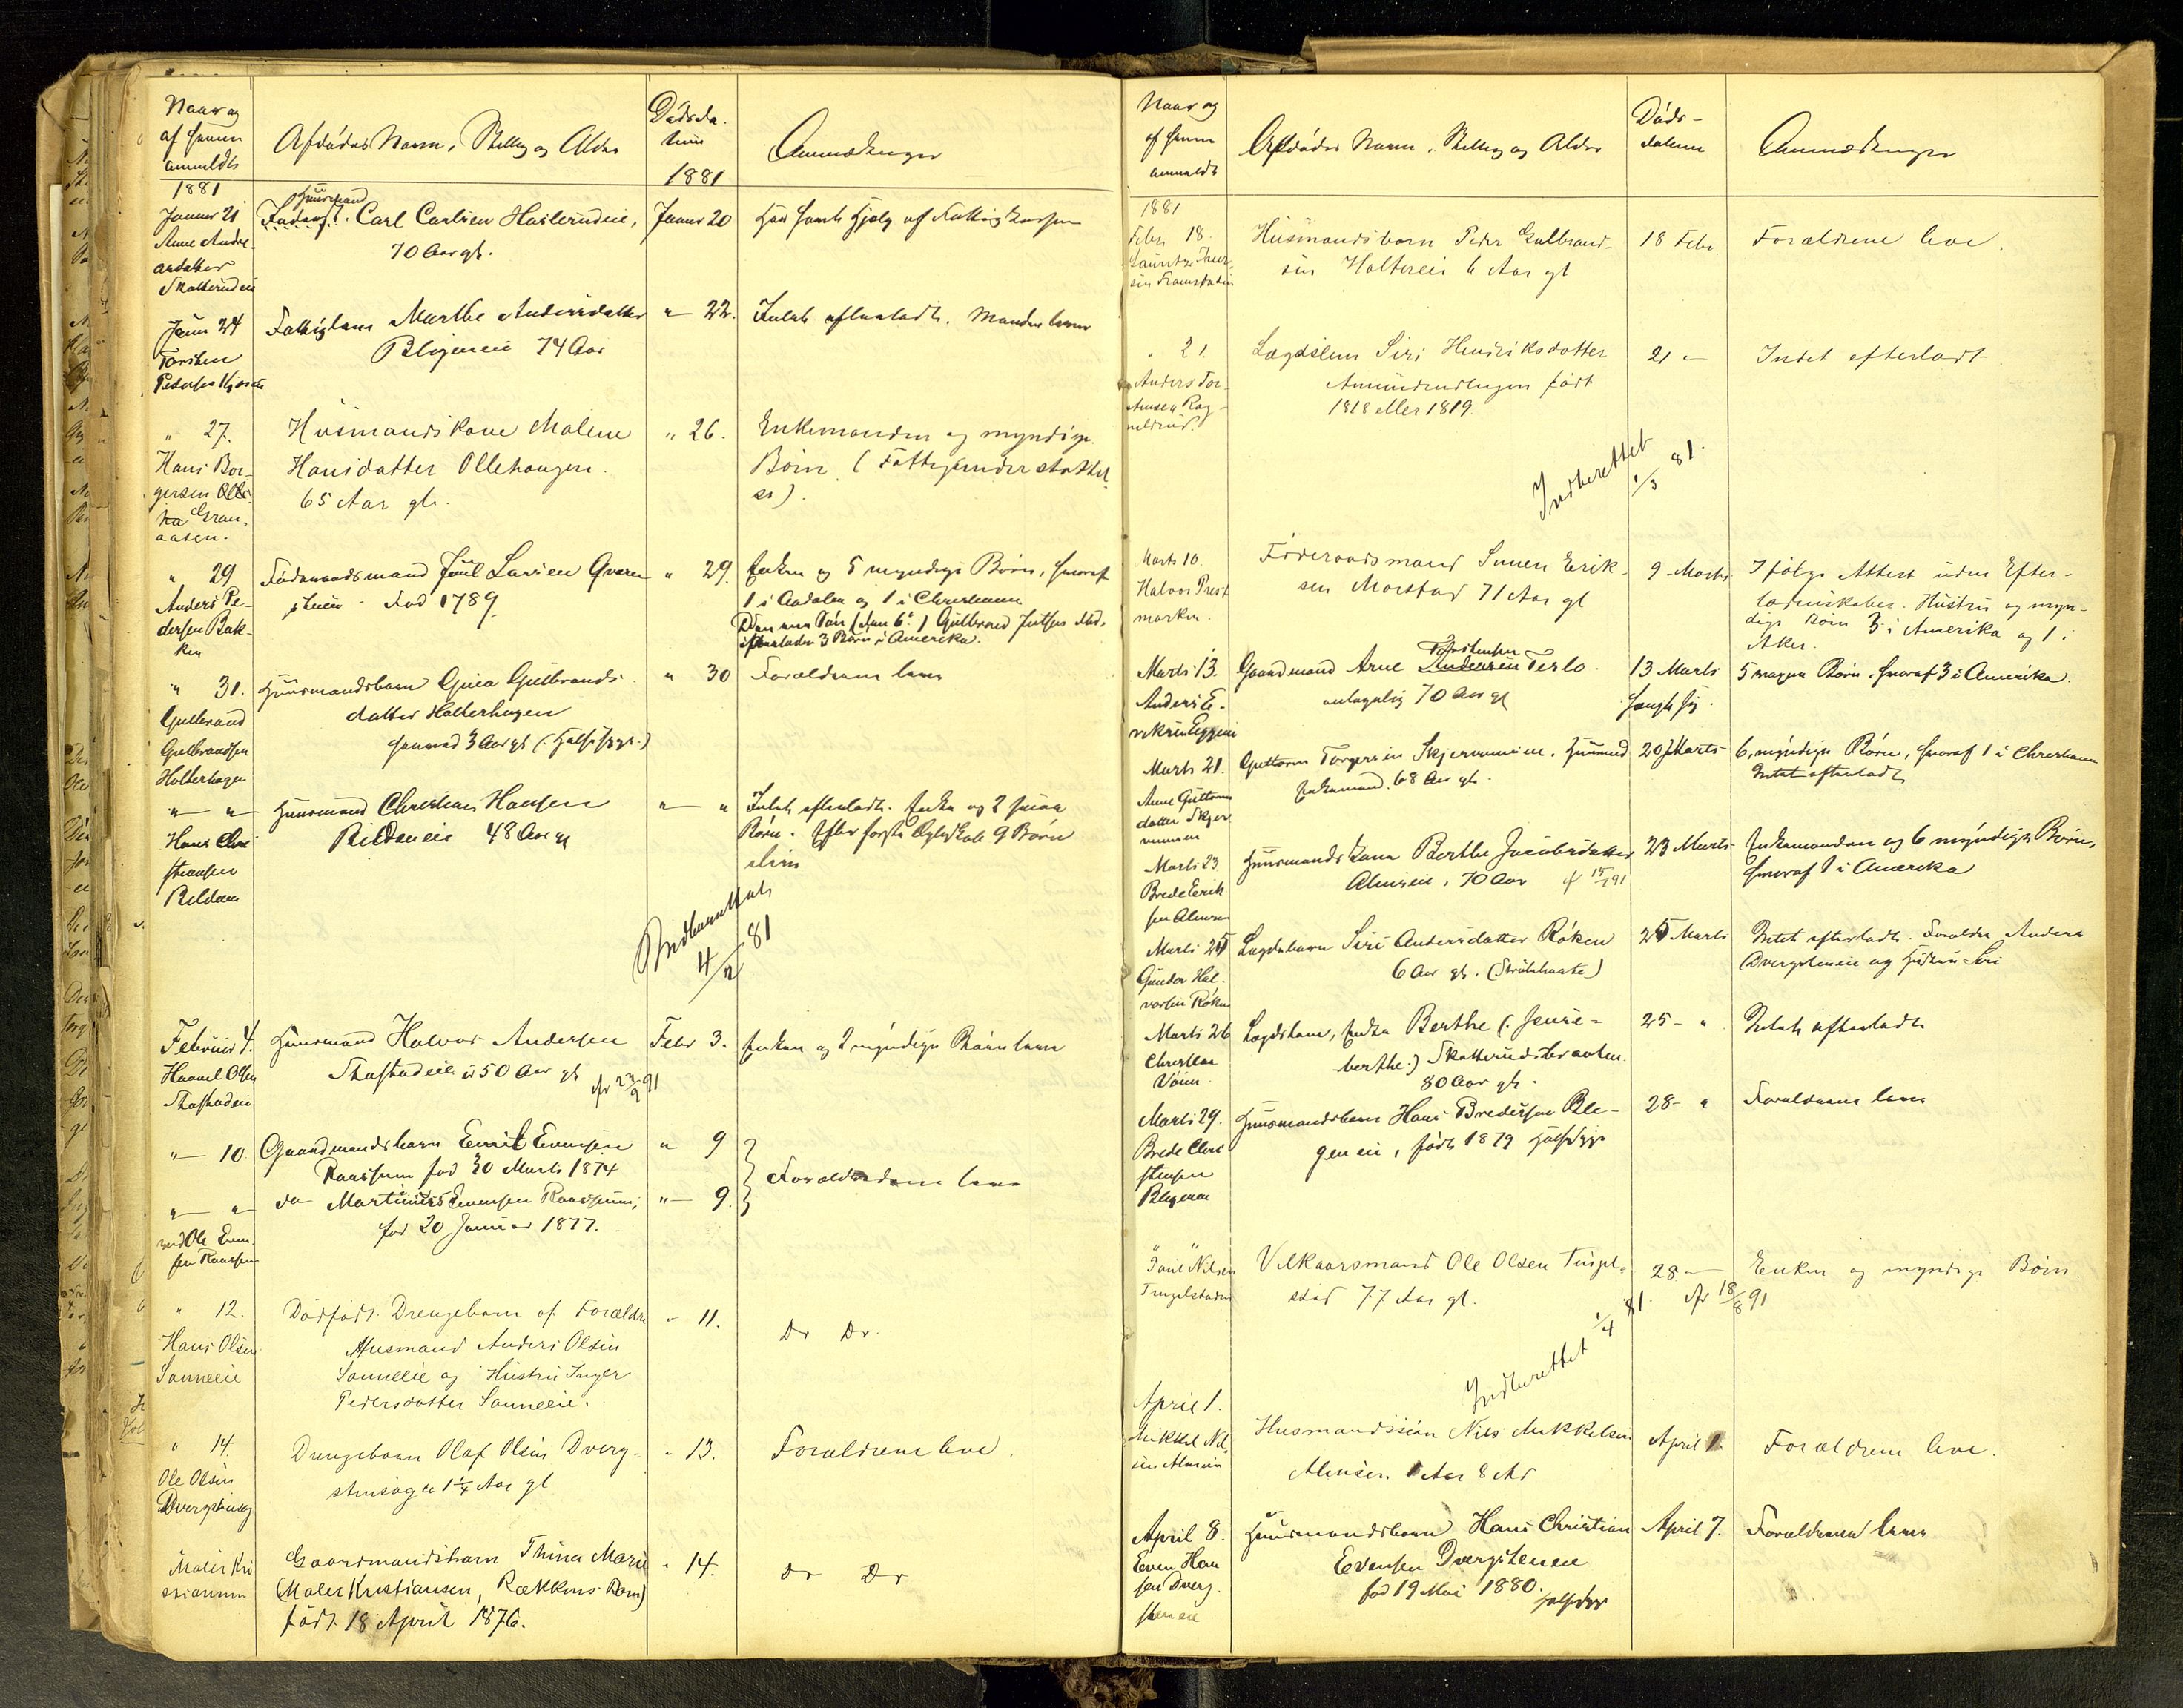 Naar og
af hvem
anmeldt
Afdødes Navn, Stilling og Alder
Dødsda-
tum
1881
Anmærkninger
1881
Januar 21
Anne Andre-
asdatter
Skatterudeie
Huusmand
Carl Carlsen Haslerudeie,
70 Aar gl.
Januar 20
Har havt Hjælp af Fattigkassen
Januar 24
Torsten
Pedersen
Fattiglem Marthe Andersdatter
Blegeneie 74 Aar
" 22.
Intet efterladt. Manden lever
" 27.
Hans Bor-
gersen
Gran-
aasen.
Husmandskone Malene
Hansdatter Ollehaugen.
65 Aar gl.
" 26.
Enkemanden og myndige
Børn. (Fattigunderstøttel-
se).
" 29
Anders Pe-
dersen Bak-
ken
Føderaadsmand Juul Larsen Qværn-
Fød 1789
" 29.
Enken og 5 myndige Børn, hvoraf
1 i Aadalen og 1 i Christiania
(den 6te) Gulbrand Julsen død,
efterlader 3 Børn i Amerika.
" 31.
Gulbrand
Gulbrandsen
Holterhagen
Huusmandsbarn Gulbrands-
datter Holterhagen
3 Aar gl (Halssyge.)
" 30
Forældrene lever
" "
Hans Chri
stiansen
Bilden
Huusmand Christian Hansen
Bildeneie 48 Aar gl
" "
Intet efterladt. Enke og 2 smaa
Børn. Efter første Ægteskab 9 Børn
Indberettet
4/2 81
Februar 4.
Haavel Olsen
Huusmand Halvor Andersen
50 Aar gl
Febr 3.
Enken og 2 myndige Børn lever
" 10
Gaardmandsbarn Emil Evensen
Raassum fød 30 Marts 1874
" 9
" "
ved Ole Even-
sen Raassum
do Martinus Evensen Raassum,
fød 20 Januar 1877.
" 9.
Forældrene lever
" 12.
Hans Olsen
Sanneeie
Dødfødt Drengebarn af Forældre
Husmand Anders Olsen
Sanneeie og Hustru Inger
Pedersdatter Sanneeie.
" 11.
Do Do
" 14.
Ole Olsen
Drengebarn Olaf Olsen Dverg-
stensageie 1 1/4 Aar gl
" 13.
Forældrene leve.
Maler Kri
stiansen
Gaardmandsbarn Thina Marie
(Maler Kristiansen, Rækkens Barn)
født 18 April 1876.
" 14.
do Do
Naar og
af hvem
anmeldt
Afdødes Navn, Stilling og Alder
Døds-
datum
Anmærkninger
1881
Febr 18.
Husmandsbarn Peder Gulbrand-
sen Haltereie 6 Aar gl
18 Febr
Forældrene leve.
" 21.
Anders Tor-
Lægdslem Siri Henriksdatter
født
1818 eller 1819.
21 "
Intet efterladt
Indberettet
1/3 81.
Marts 10.
Halvor Prest
marken
Føderaadsmand Simen Erik-
sen Morstad 71 Aar gl
9 Marts
Ifølge Attest uden Efter-
ladenskaber. Hustru og myn-
dige Børn 3 i Amerika og 1 i
Aker.
Marts 13.
Anders E-
riksen Eggeeie
Torstensen
Gaardmand Arne Andersen Terlo.
antagelig 70 Aar gl
13 Marts
5 voxne Børn, hvoraf 3 i Amerika.
Marts 21.
Anne Guttorms
datter Skjer
vumeie
Guttorm Torgersen Skjervumeie. Huusmand
Enkemand. 68 Aar gl.
20 Marts
6 myndige Børn, hvoraf 1 i Christiania
Intet efterladt
Marts 23
Brede Erik
sen Almeseie
Huusmandskone Berthe Jacobsdatter
Almseie, 70 Aar 15/1 91
23 Marts
Enkemanden og 6 myndige Børn,
hvoraf 1 i Amerika
Marts 25
Gunder Hal-
vorsen Røken
Lægdsbarn Siri Andersdatter Røken
6 Aar gl. (Strubehoste)
25 Marts
Intet efterladt. Forældre Anders
Dvergsteneie og Hustru Siri
Marts 26
Christian
Lægdslem, Enke Berthe (Jensie-
berthe:) Skatterudsbraaten.
80 Aar gl.
25 - "
Intet efterladt
Marts 29.
Brede Chri
stensen
Blegeneie
Huusmandsbarn Hans Bredesen Ble-
geneie, født 1879 Halssyge
28 - "
Forældrene lever
" "
Paul Nilsen
Tingelstadeie
Vilkaarsmand Ole Olsen Tingel-
stad 77 Aar gl.
28 "
18/8 91
Enken og myndige Børn.
Indberettet 1/4 81.
April 1.
Mikkel Nil-
sen Almseie
Husmandssøn Nils Mikkelsen
Almseie. 1 Aar 8 Md
April 1.
Forældrene leve.
April 8.
Even Han
sen Dverg-
steneie
Huusmandsbarn Hans Christian
Evensen Dvergsteneie
fød 19 Mai 1880.
April 7.
Forældrene lever